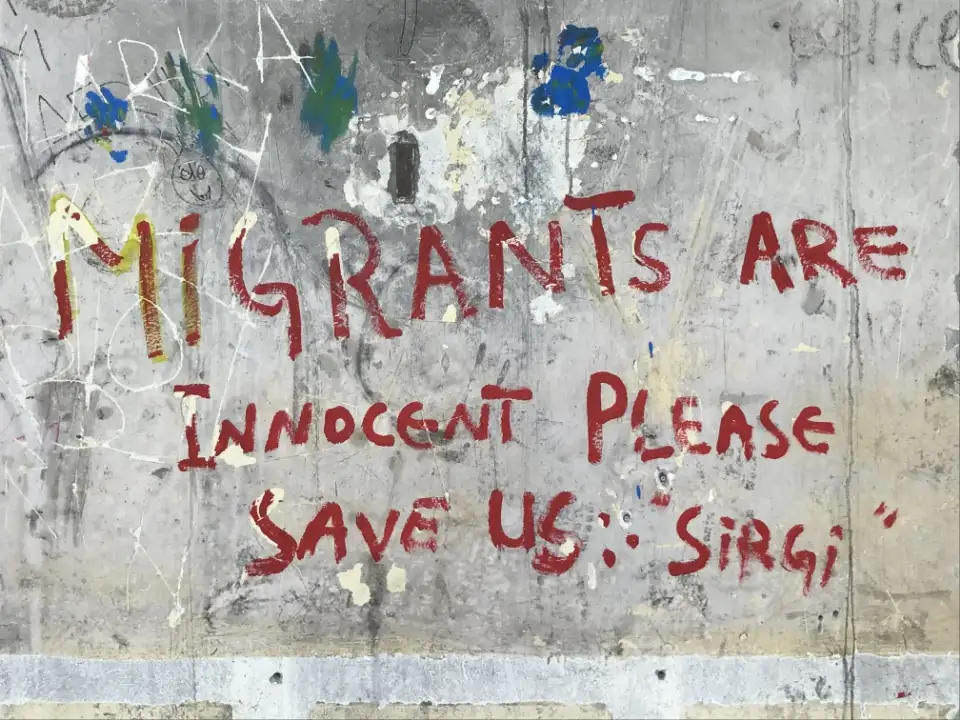 MARIA
police
MiGRANTS ARE
INNOCENT PLEASE
SAVE US: "SiRGi"